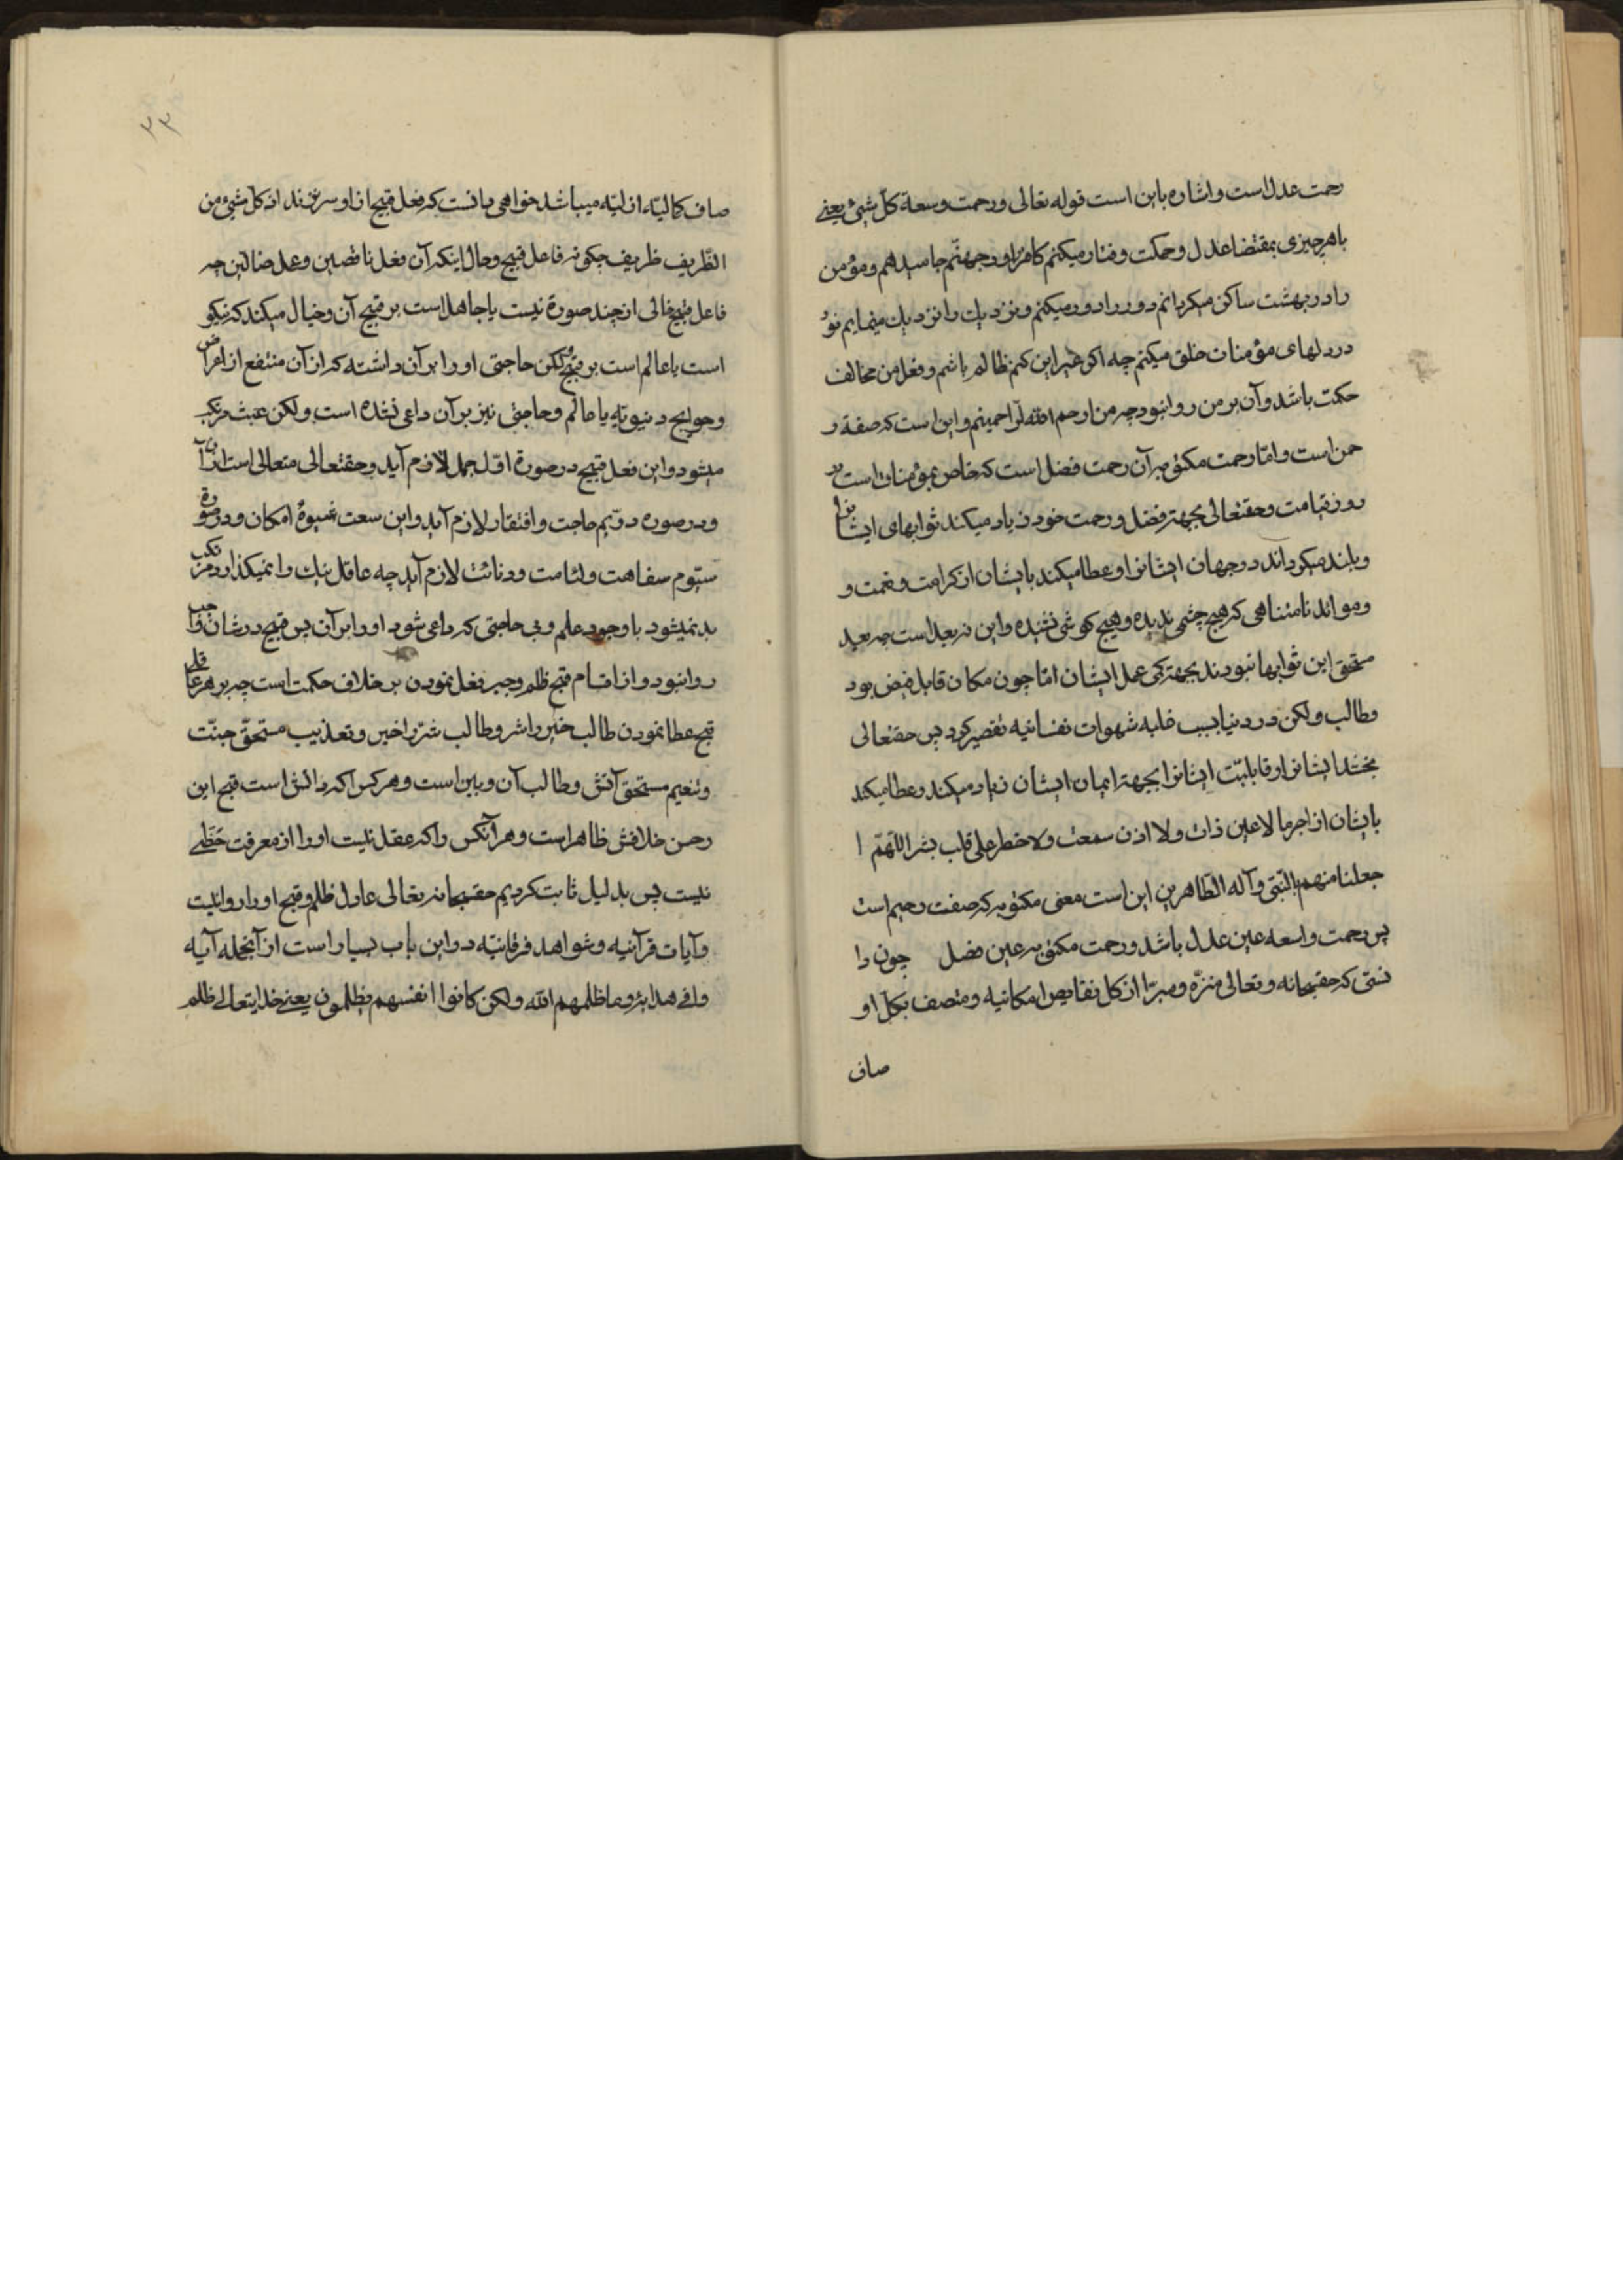 رحمت عدل است و اشاره باین است قوله تعالی و رحمت وسعة کل شیئ یعنی
باهر چیزی بمقتضا عدل و حکمت رفتار میکنم کافر را در جهنّم جا میدهم و مؤمن
را در بهشت ساکن میکردانم دور را دور میکنم و نزدیك را نزدیك مینمایم نور
در دلهای مؤمنان خلق میکنم چه اکر غیر این کنم ظالم باشم و فعل من مخالف
حکمت باشد و آن بر من روا نبود چه من ارحم الراحمینم و این است که صفة ر
حمن است و امّا رحمت مکتوبه آن رحمت فضل است که خاص بمؤمنان است در
روز قیامت و حقتعالی بجهتر فضل و رحمت خود زیاد میکند ثوابهای ایشانرا
و بلند میکرداند درجهای ایشانرا و عطا میکند بایشان از کرامت و نعمت و
و موائد نامتناهی که هیچ چشمی ندیده و هیچ کوشی نشنیده و این نه بعید است چه بعید
مستحق این ثوابها نبودند بجهتر کمی عمل ایشان امّا چون مکان قابل فیض بود
و طالب ولکن در دنیا بسبب غلبه شهوات نفسانیه تقصیر کرد پس حقتعالی
بخشد ایشانرا و قابلیّت ایشانرا بجهتر ایمان ایشان زیاد میکند و عطا میکند
بایشان از اجر ما لا عین رات و لا اذن سمعت و لا خطر علی قلب بشر اللّهمّ ا
جعلنا منهم بالنّبی و آله الطّاهرین این است معنی مکتوبه که صفت رحیم است
پس رحمت واسعه عین عدل باشد و رحمت مکتوبه عین فضل چون دا
نستی که حقسبحانه و تعالی منزّه و مبرّا از کل نقایص امکانیه و متصف بکل او
صاف
۳۳
صاف کمالیّه ازلیّه میباشد خواهی دانست که فعل قبیح از او سر نزند از کل شیئ من
الظّریف ظریف چکونه فاعل قبیح و حال اینکه آن فعل ناقصین و عمل ضالّین چه
فاعل قبیح خالی از چند صورة نیست یا جاهل است بر قبیح آن و خیال میکند که نیکو
است یا عالم است بر قبیح لکن حاجتی او را بر آن داشته که از آن منتفع از اعراض
و حوایج دنیویّه یا عالم و حاجتی نیز بر آن داعی نشده است ولکن عبث مرتکب
میشود و این فعل قبیح در صورة اوّل جهل لازم آید و حقتعالی متعالی است از آن
و در صوره دویّم حاجت و افتقار لازم آید و این سمت شیوهٔ امکان و در صورة
سیّوم سفاهت و لئامت و دنائت لازم آید چه عاقل نیك را نمیکذارد مرتکب
بد نمیشود با وجود علم و بی حاجتی که داعی شود او را بر آن پس قبیح در شان واجب
روا نبود و از اقسام قبح ظلم و جبر فعل نمودن بر خلاف حکمت است چه بر هر عاقل
قبح عطا نمودن طالب خیر را شر و طالب شرّ را خیر و تعذیب مستحقّ جنّت
و تنعیم مستحق آتش و طالب آن و بین است و هر کس را که دانش است قبح این
و حسن خلافش ظاهر است و هر آنکس را که عقل نیست او را از معرفت حظّی
نیست پس بدلیل ثابت کردیم حقسبحانه تعالی عادل ظلم و قبح او را روا نیست
و آیات قرآنیه و شواهد فرقانیّه در این باب بسیار است از آنجمله آیه
وافی هدایه و ما ظلمهم الله ولکن کانوا انفسهم یظلمون یعنی خدایتعالی ظلم